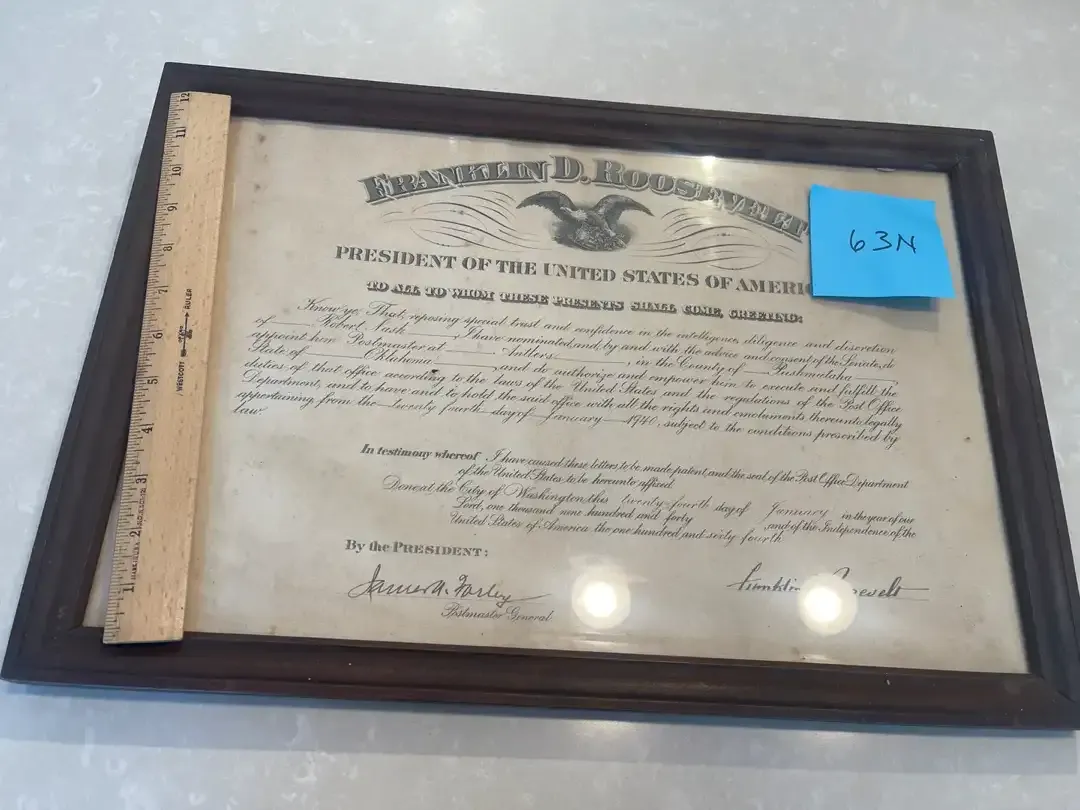 FRANKLIN D. ROOSEVELT
63N
PRESIDENT OF THE UNITED STATES OF AMERIC
TO ALL TO WHOM THESE PRESENTS SHALL COME, GREETING:
Know ye, That, reposing special trust and confidence in the intelligence, diligence and discretion
of Robert Nash, I have nominated, and, by and with the advice and consent of the Senate, do
appoint him Postmaster at Antlers, in the County of Pushmataha,
State of Oklahoma, and do authorize and empower him to execute and fulfill the
duties of that office according to the laws of the United States and the regulations of the Post Office
Department, and to have and to hold the said office with all the rights and emoluments thereunto legally
appertaining, from the twenty fourth day of January 1940, subject to the conditions prescribed by
law.
In testimony whereof I have caused these letters to be made patent, and the seal of the Post Office Department
of the United States to be hereunto affixed.
Done at the City of Washington this twenty-fourth day of January in the year of our
Lord, one thousand nine hundred and forty, and of the Independence of the
United States of America the one hundred and sixty fourth
By the PRESIDENT:
James A. Farley
Franklin Roosevelt
Postmaster General
12
11
10
9
8
7
6
5
4
3
2
1
WESTCOTT RULER